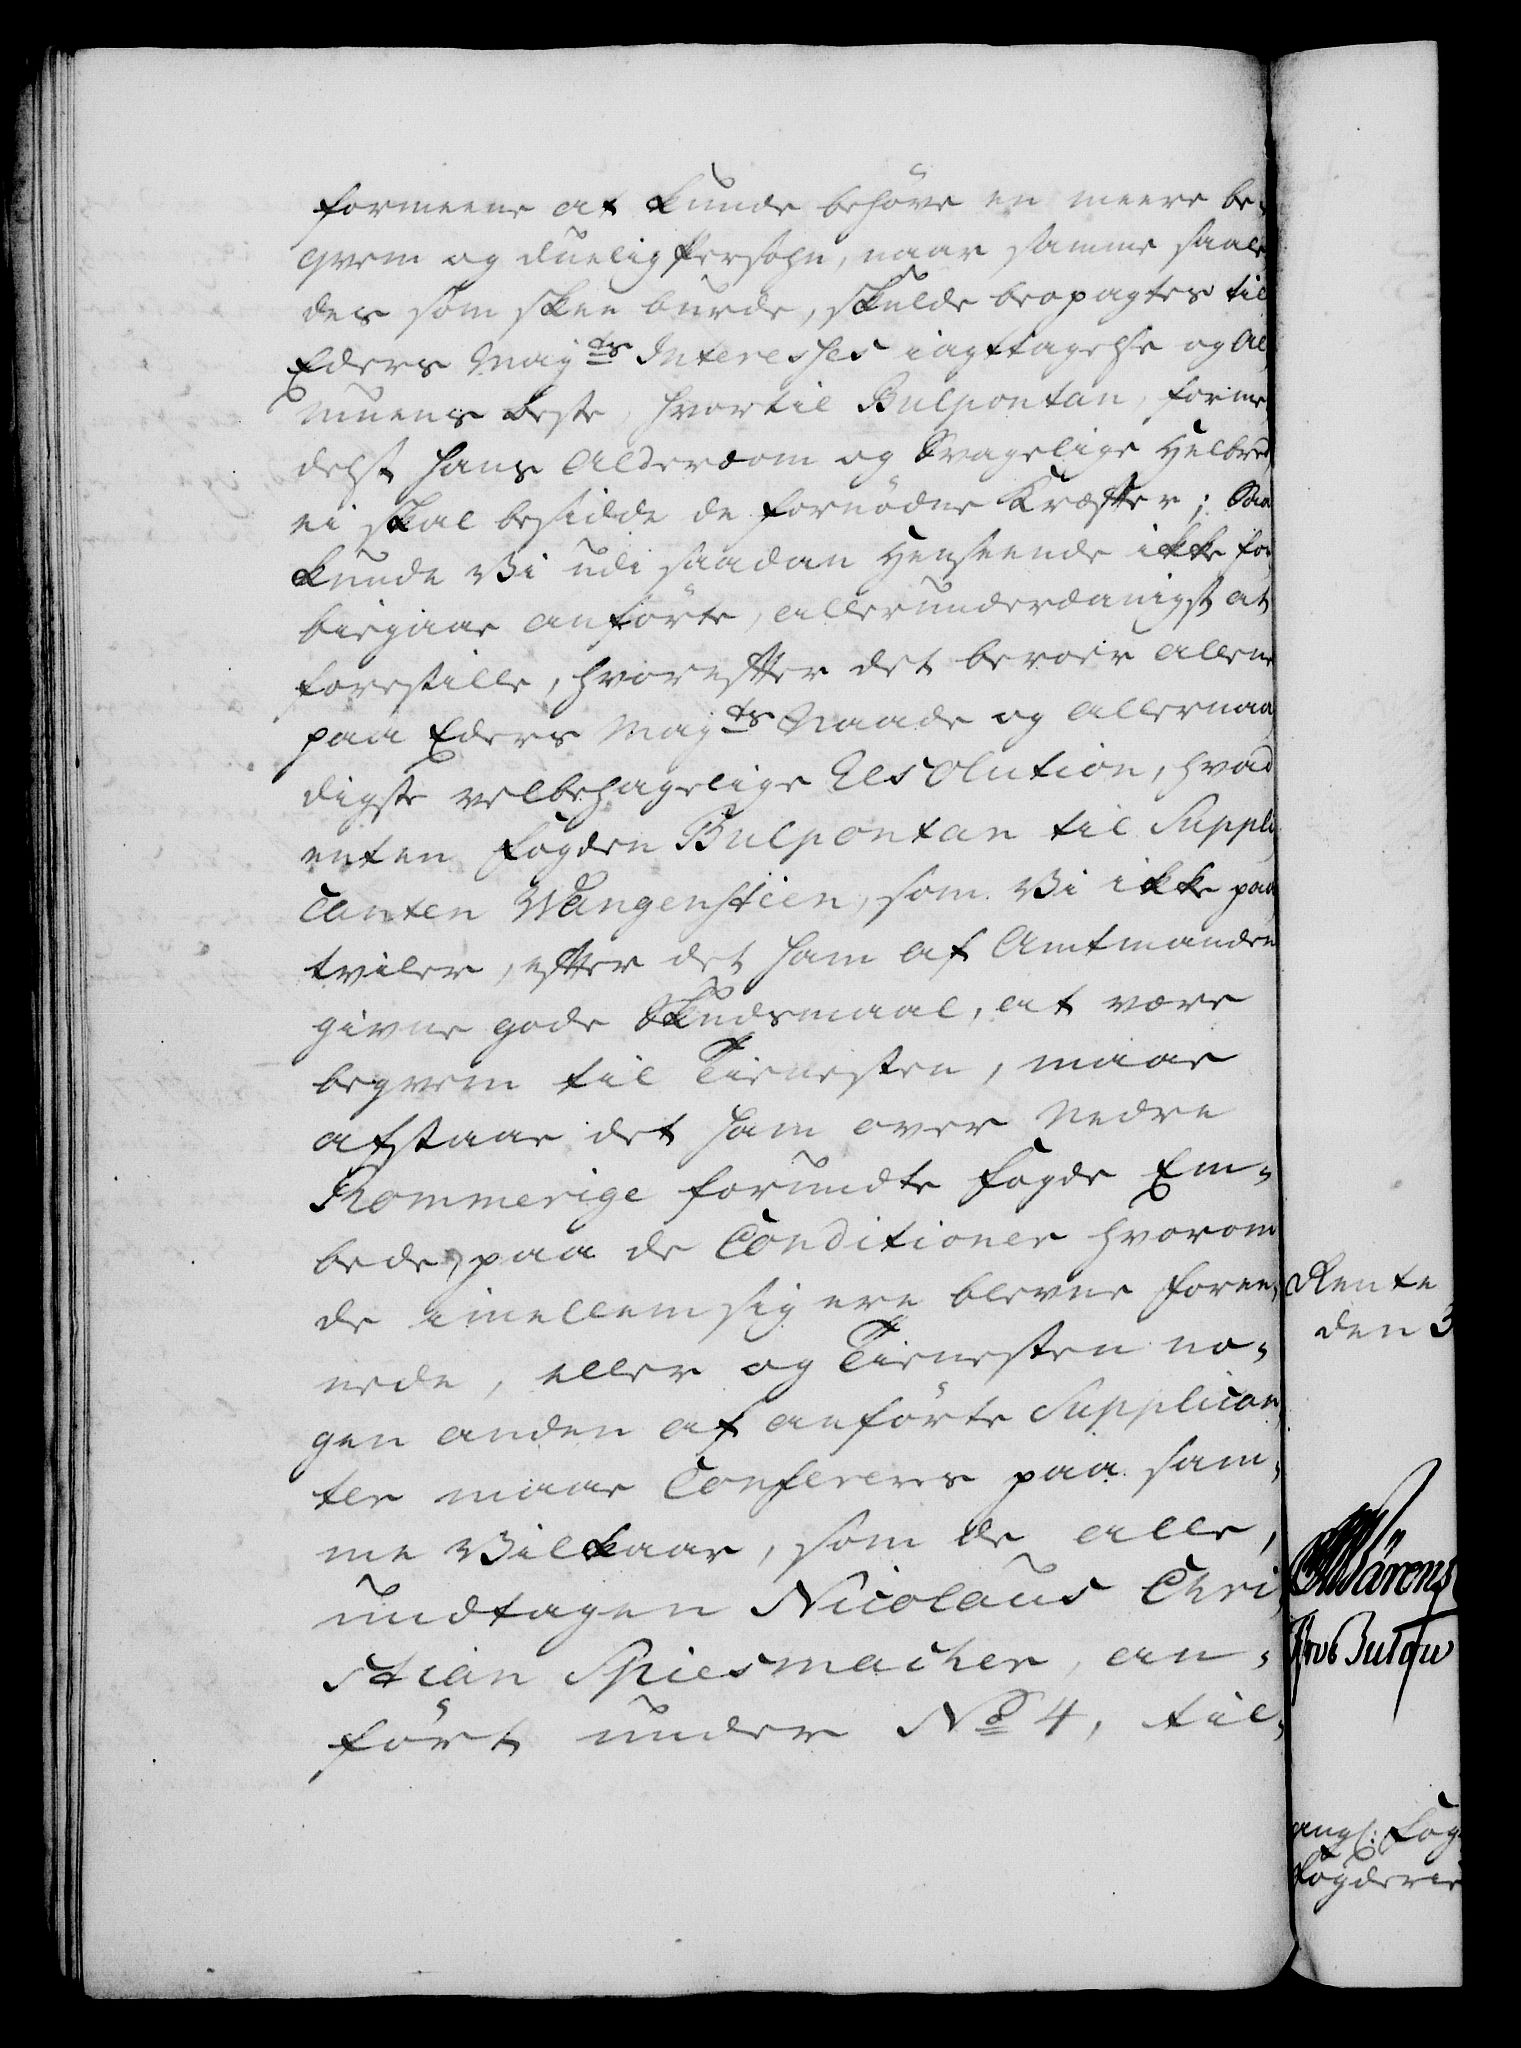 formeene at kunde behöve en meere be-
qvem og duelig Persohn, naar samme saale
des som skee burde, skulde beopagtes til
Eders May:ts Interesses iagttagelse og Al
muens Beste, hvortil Bulpontan, forme
delst hans Alderdom og Svagelige Helbred
ei skal besidde de fornödne Kræfter; Saa
kunde Vi udi saadan Henseende ikke for
biegaae anförte, allerunderdanigst at
forestille, hvorefter det beroer allene
paa Eders May:ts Naade og allernaa
digste velbehagelige Resolution, hvad
enten Fogden Bulpontan til Suppli
canten Wangensteen, som Vi ikke paa
tviler, efter det ham af Amtmanden
givne gode Skudsmaal, at være
beqvem til Tienesten, maae
afstaae det ham over Nedre
Rommerige forundte Fogde Em-
bede, paa de Conditioner hvorom
de imellem sig ere blevne foree,
nede, eller og Tienesten no-
gen anden af anförte Supplican
ter maae Confereres paa sam-
me Vilkaar, som de alle,
undtagen Nicolaus Chri
stian Spiesmacher, an-
fört under No 4, til-
Rente
den 3
Wärens
angl: Fog
Fogderie